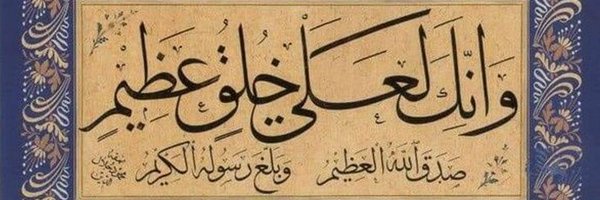 وَإِنَّكَ لَعَلَىٰ خُلُقٍ عَظِيمٍ
صدق الله العظيم وبلغ رسوله الكريم